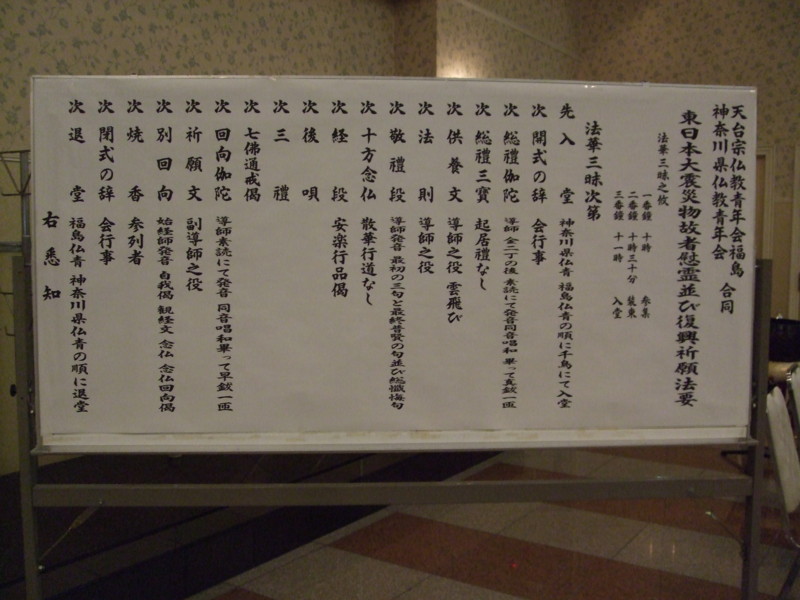 天台宗仏教青年会福島
神奈川県仏教青年会
合同
東日本大震災物故者慰霊並び復興祈願法要
法華三昧之枚
一番鐘 十時 参集
二番鐘 十時三十分 装束
三番鐘 十一時 入堂
法華三昧次第
先入堂 神奈川県仏青 福島仏青の順に千鳥にて入堂
次開式の辞 会行事
次総禮伽陀 導師 金二丁の後 素読にて発音同音唱和 畢って真鈸一匝
次総禮三寳 起居禮なし
次供養文 導師之役 雲飛び
次法則 導師之役
次敬禮段 導師発音 最初の三句と最終普賢の句並び総懺悔句
次十方念仏 散華行道なし
次経段 安楽行品偈
次後唄
次三禮
七佛通戒偈
次回向伽陀 導師素読にて発音 同音唱和畢って早鈸一匝
次祈願文 副導師之役
次別回向 始経師発音 自我偈 観経文 念仏 念仏回向偈
次焼香 参列者
次閉式の辞 会行事
次退堂 福島仏青 神奈川県仏青の順に退堂
右悉知